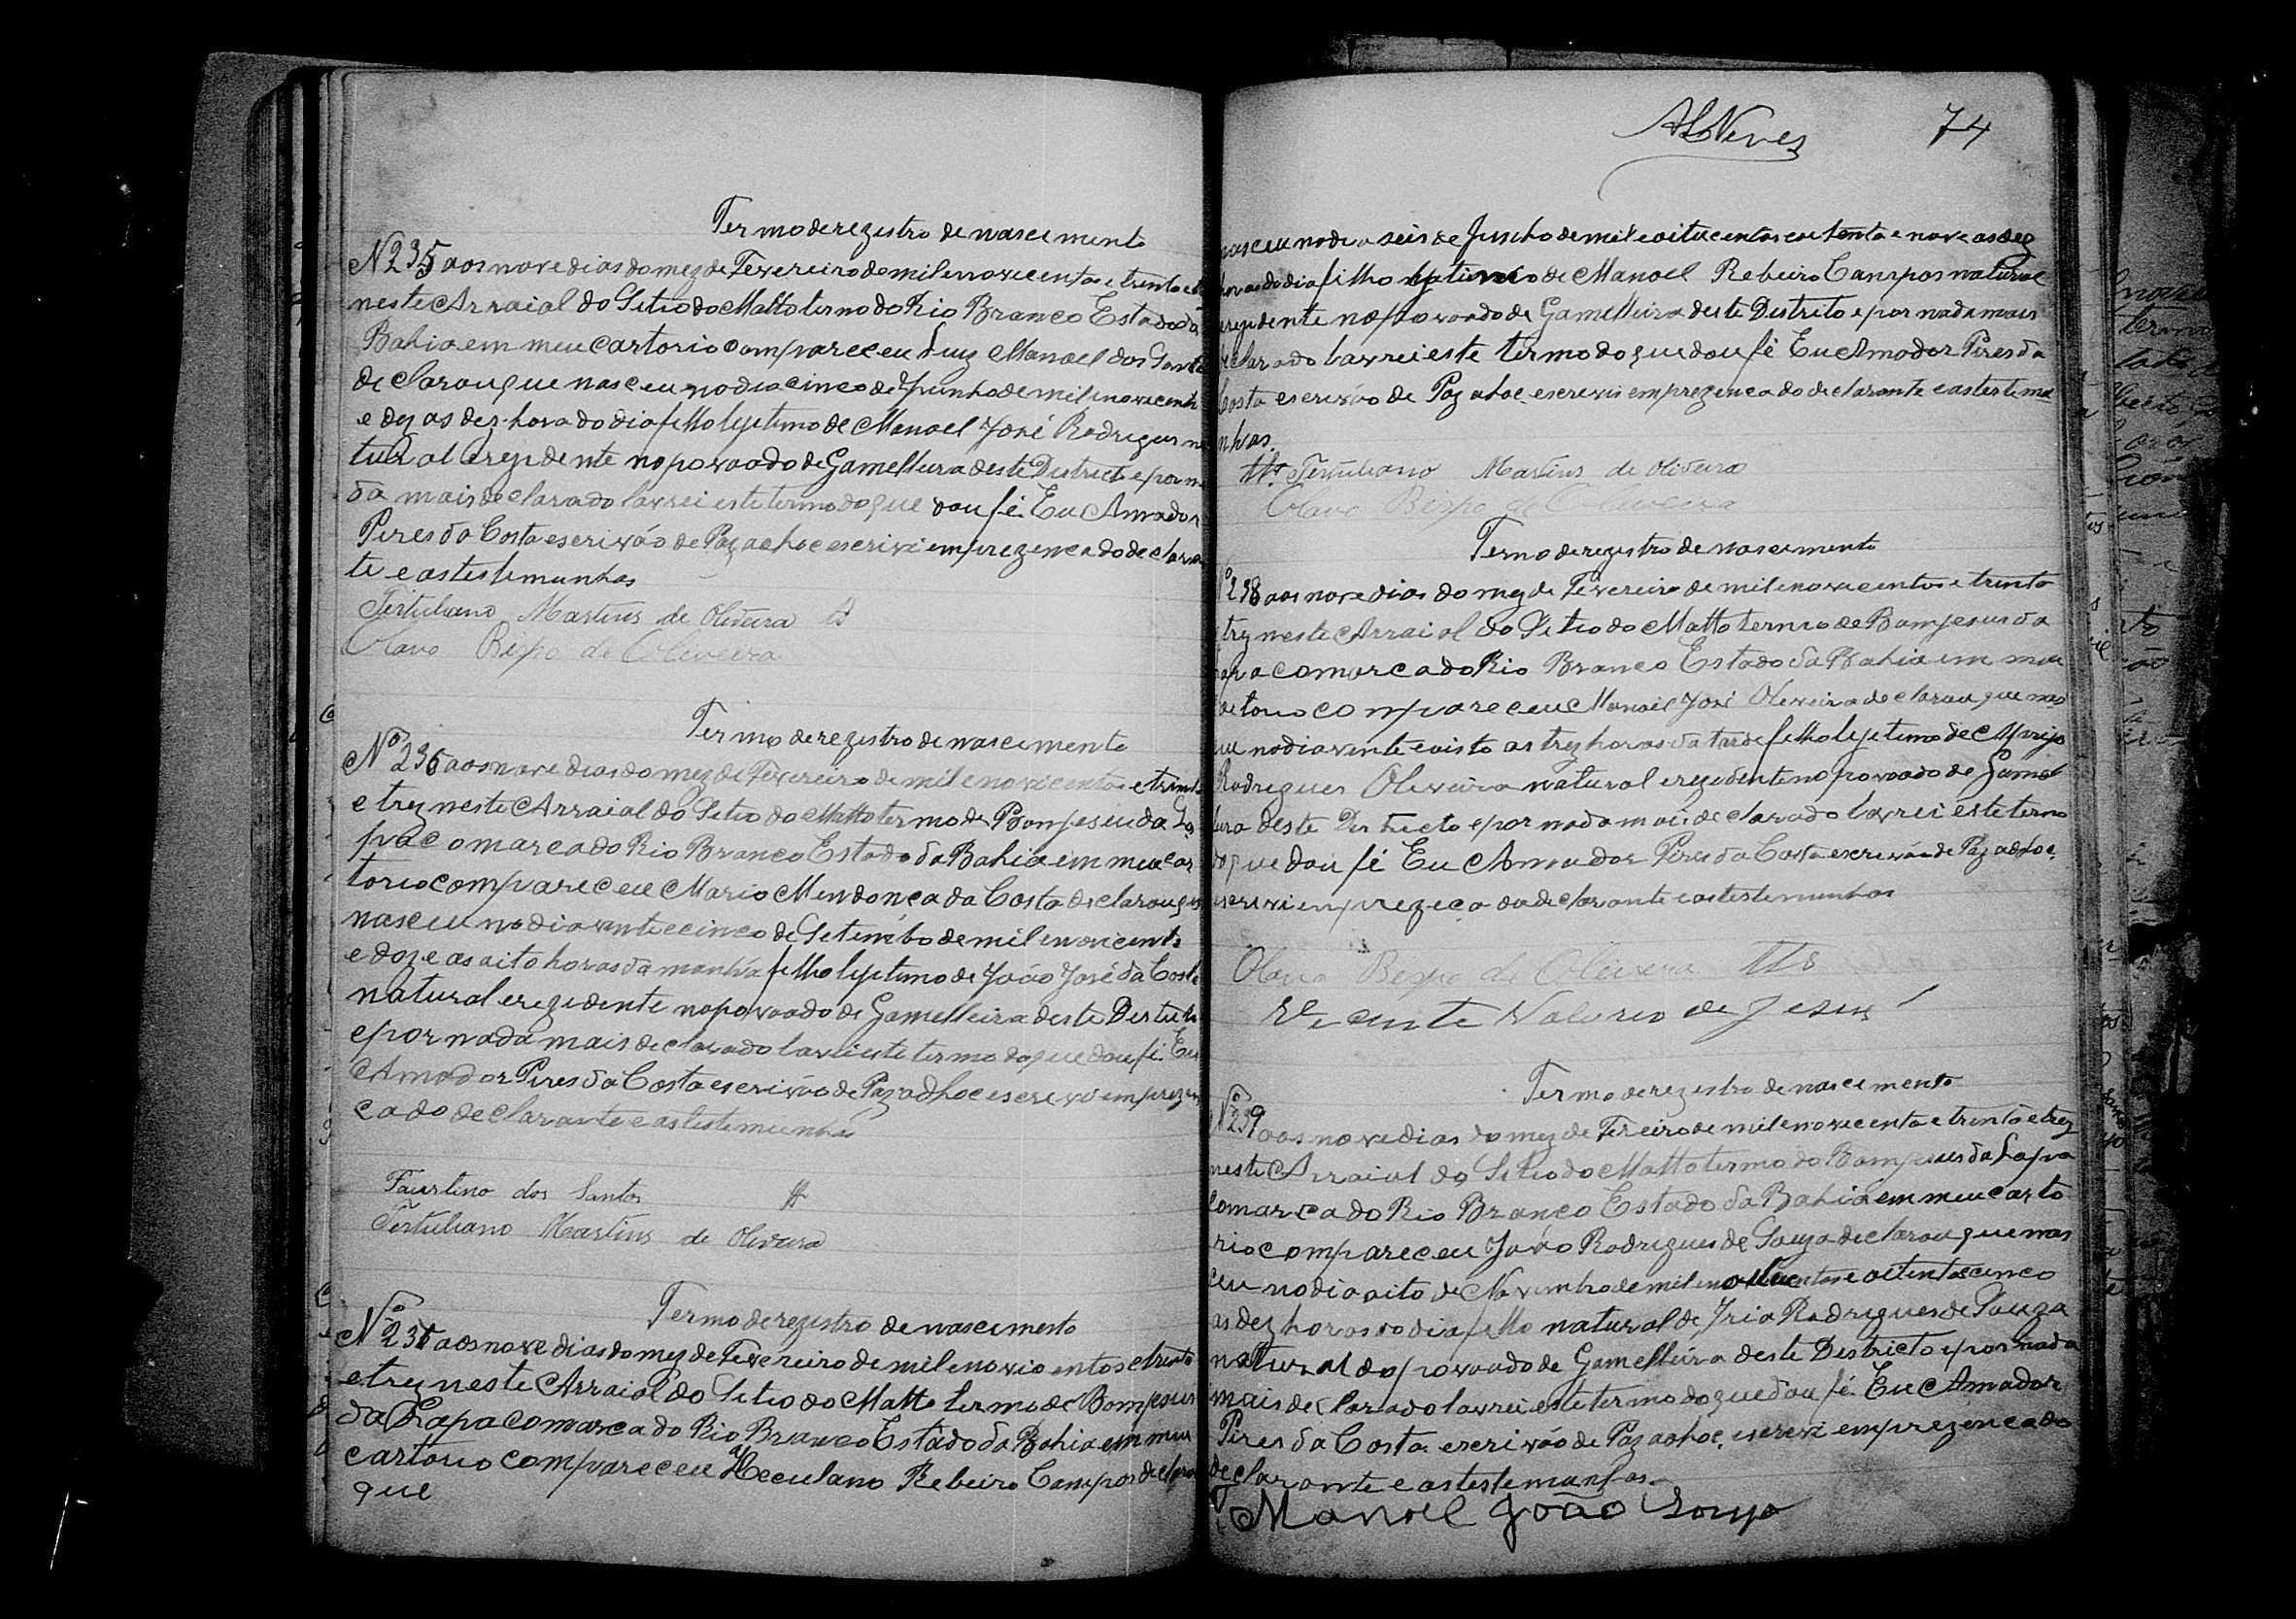 Termo de registro de nascimento
N 235 aos nove dias do mez de Fevereiro de mil e novecentos e trenta e
neste Arraial do Sitio do Matto termo do Rio Branco Estado da
Bahia em meu cartorio compareceu Luiz Manoel dos Santo
declarou que nasceu no dia cinco de Junho de mil e novecent
e dez as dez hora do dia filho lejetimo de Manoel José Rodrigues na
tural e rezidente no povoado de Gamelleira deste Districto e por na
da mais declarado lavrei este termo do que dou fé. Eu Amador
Pires da Costa escrivão de Paz adhoc escrivi em prezenca do declaran
te e as testemunhas
Tertuliano Martins de Oliveira
Olavo Bispo de Oliveira
Termo de registro de nascimento
Nº 236 aos nove dias do mez de Fevereiro de mil e novecentos e trint
e trez neste Arraial do Sitio do Matto termo de Bomjesus da La
pa comarca do Rio Branco Estado da Bahia em meu car
torio compareceu Mario Mendonça da Costa declarou que
nasceu no dia vinte e cinco de Setembo de mil e novecento
e doze as oito horas da manhã filho lejetimo de João José da Costa
natural e rezidente no povoado de Gamelleira deste Destricto
e por nada mais declarado lavrei este termo do que dou fé. Eu
Amador Pires da Costa escrivão de Paz adhoc escrevi em prezen
ca do declarante e as testemunha
Faustino dos Santos
Tertuliano Martins de Oliveira
Termo de registro de nascimento
Nº 237 aos nove dias do mez de Fevereiro de mil e novecentos e trenta
e trez neste Arraial do Sitio do Matto termo de Bomjesus
da Lapa comarca do Rio Branco Estado da Bahia em meu
cartorio compareceu Heculano Rebeiro Campos declarou
que
ALNeves 74
nasceu no dia seis de Junho de mil e oitucentos e outenta e nove as dez
horas do dia filho lejtimo de Manoel Rebeiro Campos natural
e rezidente no povoado de Gamelleira deste Destrito e por nada mais
declarado lavrei este termo do que dou fé Eu Amador Pires da
Costa escrivão de Paz adoc escrevi em prezença do declarante e as testemu
nhas.
Tertuliano Martins de Oliveira
Olavo Bispo de Oliveira
Termo de registro de nascimento
Nº 238 aos nove dias do mez de Fevereiro de mil e novecentos e trinta
e trez neste Arraial do Sitio do Matto termo de Bomjesus da
Lapa comarca do Rio Branco Estado da Bahia em meu
cartorio compareceu Manoel José Oliveira declarou que nas
ceu no dia vinte e oisto as trez horas da tarde filho lejetimo de
Rodrigues Oliveira natural e rezidente no povoado de Gamel
leira deste Destricto e por nada mais declarado lavrei este termo
do que dou fé Eu Amador Pires da Costa escrivão de Paz adhoc.
escrivi em prezeça do declarante e as testemunhas
Olavo Bispo de Oliveira
Vicente Valerio de Jesus
Termo de rezestro de nascimento
Nº 239 aos nove dias do mez de Fereiro de mil e novecento e trinta e trez
neste Arraial do Sitio do Matto termo do Bomjesus da Lapa
comarca do Rio Branco Estado da Bahia em meu carto
rio compareceu João Rodrigues de Souza declarou que nas
ceu no dia oito de Novembro de mil e oitucentos e oitenta e cinco
as dez horas do dia filho natural de Iria Rodrigues de Souza
natural do povoado de Gamelleira deste Destricto e por nada
mais declarado lavrei este termo do que dou fé. Eu Amador
Pires da Costa escrivão de Paz adhoc. escrevi em prezença do
declarante e as testemunhas.
Manoel João Souza